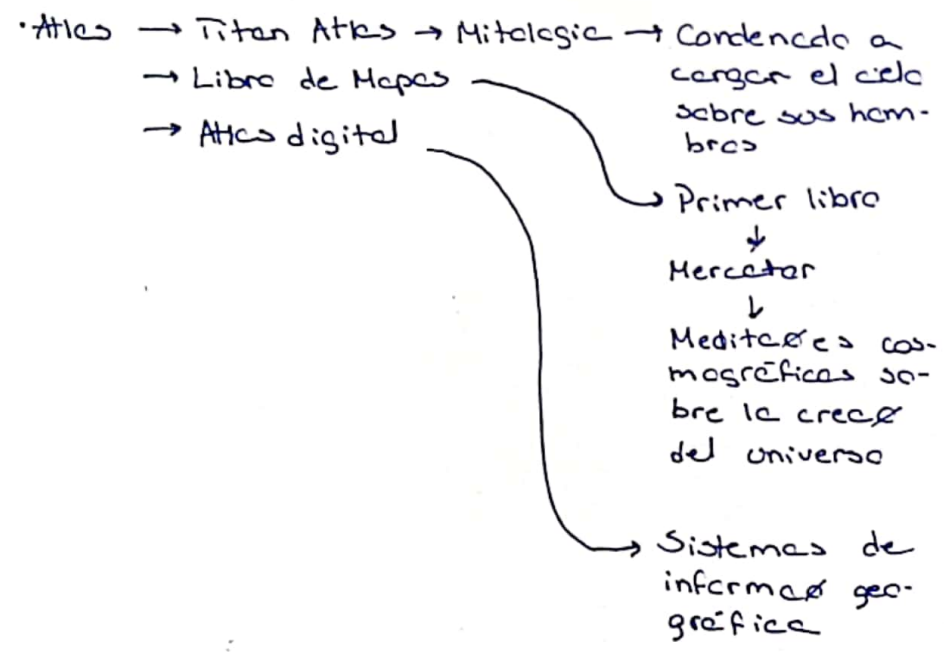 ·Atlas → Titan Atlas → Mitologia → Condenado a
cargar el cielo
sobre sus hom-
bros
→ Libro de Mapas
→ Atlas digital
Primer libro
↓
Mercator
↓
Meditacøes cos-
mográficas so-
bre la creacø
del universo
Sistemas de
informacø geo-
gráfica